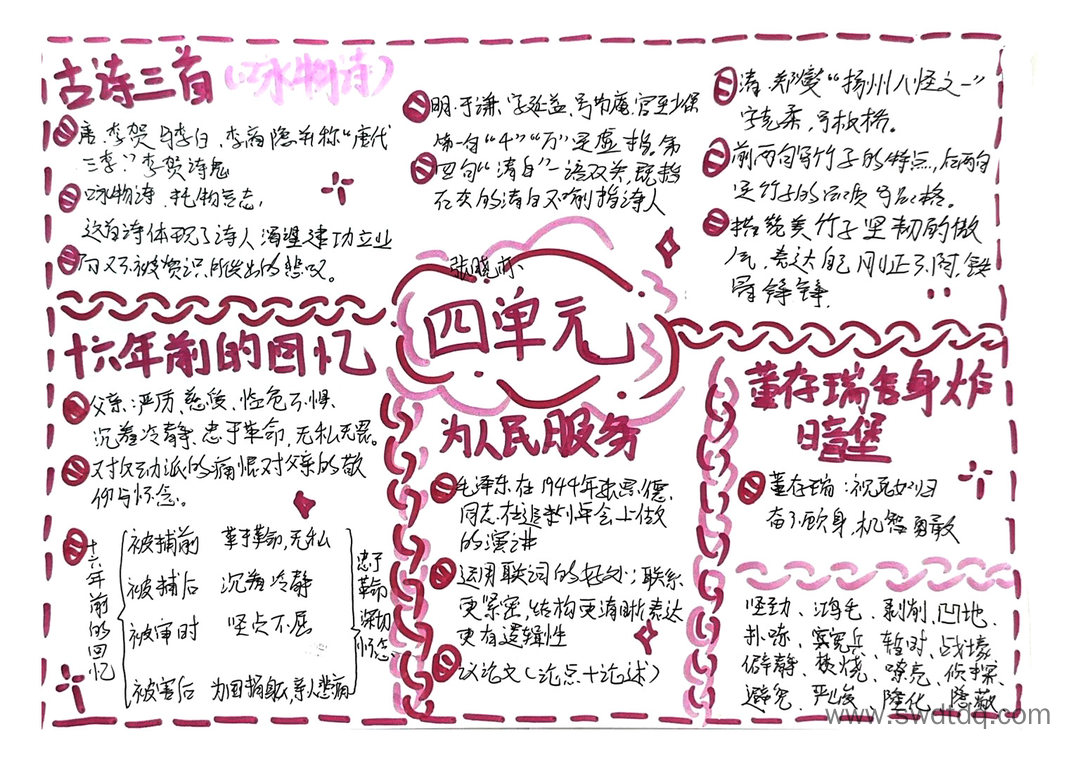 古诗三首(咏物诗)
唐·李贺与李白、李商隐并称“唐代
三李”李贺诗鬼
咏物诗,托物言志,
这首诗体现了诗人渴望建功立业
而又不被赏识所发出的悲叹。
明·于谦、字廷益,号节庵,官至少保
第一句“千”“万”是虚指。第
四句“清白”一语双关,既指
石灰的清白又喻指诗人
清 郑燮“扬州八怪之一”
字克柔,号板桥。
前两句写竹子的特点,后两句
写竹子的品质与品格。
赞美竹子坚韧的傲
气,表达自己刚正不阿,铁
骨铮铮.
张晓林
四单元
十六年前的回忆
父亲:严厉、慈爱、临危不惧
沉着冷静、忠于革命,无私无畏。
对反动派的痛恨对父亲的敬
仰与怀念。
十六年前的回忆
被捕前 革于革命,无私
被捕后 沉着冷静
被审时 坚贞不屈
被害后 为国捐躯,亲人悲痛
忠于革命深切怀念
为人民服务
毛泽东在1944年张思德
同志在追悼会上做
的演讲
运用联词的好处:联系
更紧密,结构更清晰,表达
更有逻辑性
议论文(论点+论述)
董存瑞舍身炸
暗堡
董存瑞:视死如归
奋不顾身,机智勇敢
坚劲、鸿毛、剥削、凹地、
扑哧、宪兵、暂时、战壕
僻静、焚烧、嘹亮、侦探、
避免、严峻、隆化、隐蔽
www.swdtdq.com